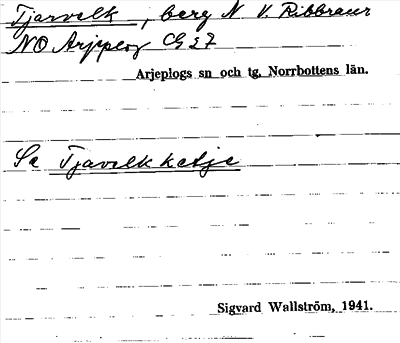 Tjarvelk, berg N V. Ribbraur
NO Arjeplog CG 27
Arjeplogs sn och tg, Norrbottens län.
Se Tjavelkketje
Sigvard Wallström, 1941.